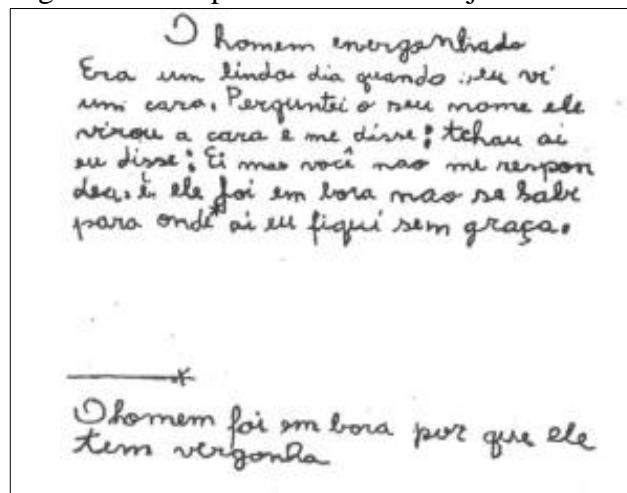 O homem envergonhado
Era um lindo dia quando eu vi
um cara. Perguntei o seu nome ele
virou a cara e me disse: tchau ai
eu disse: Ei mas você nao me respon
deu. E ele foi em bora nao se sabe
para onde* ai eu fiquí sem graça.
O homem foi em bora por que ele
tem vergonha